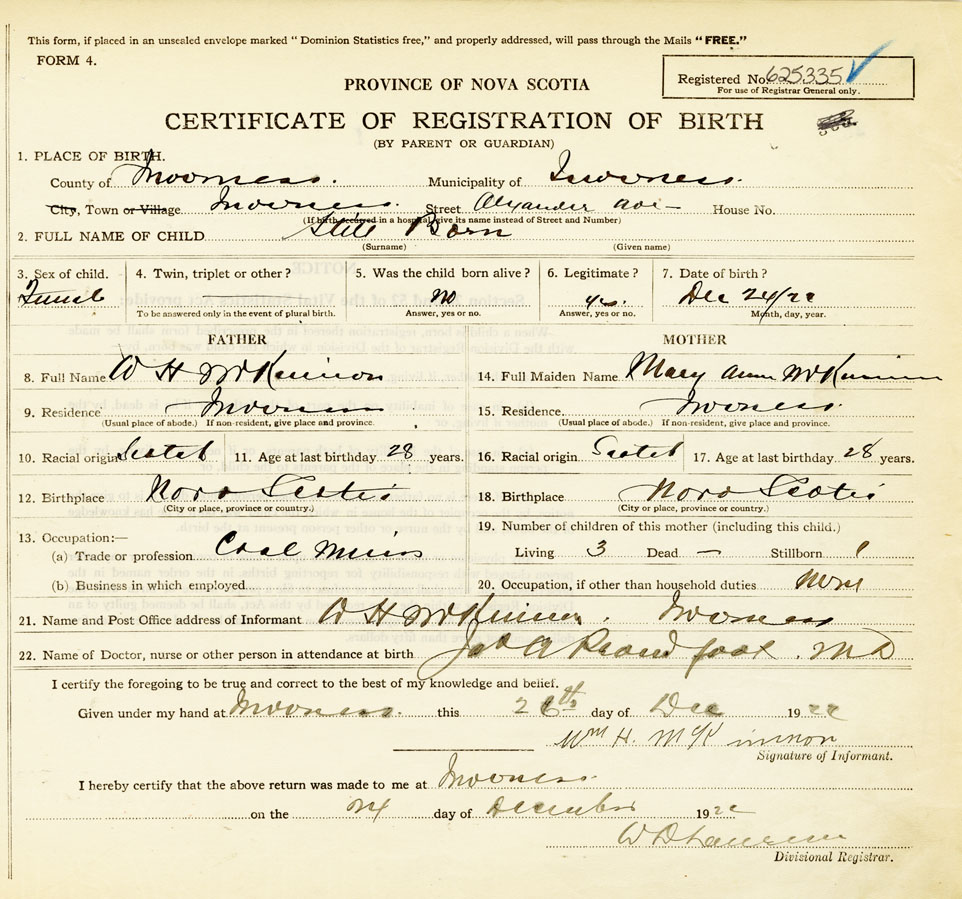 This form, if placed in an unsealed envelope marked “ Dominion Statistics free,” and properly addressed, will pass through the Mails “ FREE.”
FORM 4.
Registered No. 625335
For use of Registrar General only.
PROVINCE OF NOVA SCOTIA
CERTIFICATE OF REGISTRATION OF BIRTH
(BY PARENT OR GUARDIAN)
1. PLACE OF BIRTH.
County of Inverness. Municipality of Inverness.
City, Town or Village Inverness. Street Alexander Ave— House No.
(If birth occurred in a hospital, give its name instead of Street and Number)
2. FULL NAME OF CHILD Still Born
(Surname) (Given name)
3. Sex of child. 4. Twin, triplet or other? 5. Was the child born alive? 6. Legitimate? 7. Date of birth?
Female no yes. Dec 24/22
To be answered only in the event of plural birth. Answer, yes or no. Answer, yes or no. Month, day, year.
FATHER MOTHER
8. Full Name W H McKinnon 14. Full Maiden Name Mary Ann McKinnon
9. Residence Inverness 15. Residence. Inverness.
(Usual place of abode.) If non-resident, give place and province. (Usual place of abode.) If non-resident, give place and province.
10. Racial origin Scotch 11. Age at last birthday 28 years. 16. Racial origin Scotch 17. Age at last birthday 28 years.
12. Birthplace Nova Scotia 18. Birthplace Nova Scotia
(City or place, province or country.) (City or place, province or country.)
13. Occupation:— 19. Number of children of this mother (including this child.)
(a) Trade or profession. Coal Miner Living 3 Dead — Stillborn 1
(b) Business in which employed 20. Occupation, if other than household duties None
21. Name and Post Office address of Informant W H McKinnon. Inverness
22. Name of Doctor, nurse or other person in attendance at birth A M D
I certify the foregoing to be true and correct to the best of my knowledge and belief.
Given under my hand at Inverness. this 26th day of Dec 1922
Wm H. McKinnon
Signature of Informant.
I hereby certify that the above return was made to me at Inverness.
on the day of December 1922
W D
Divisional Registrar.